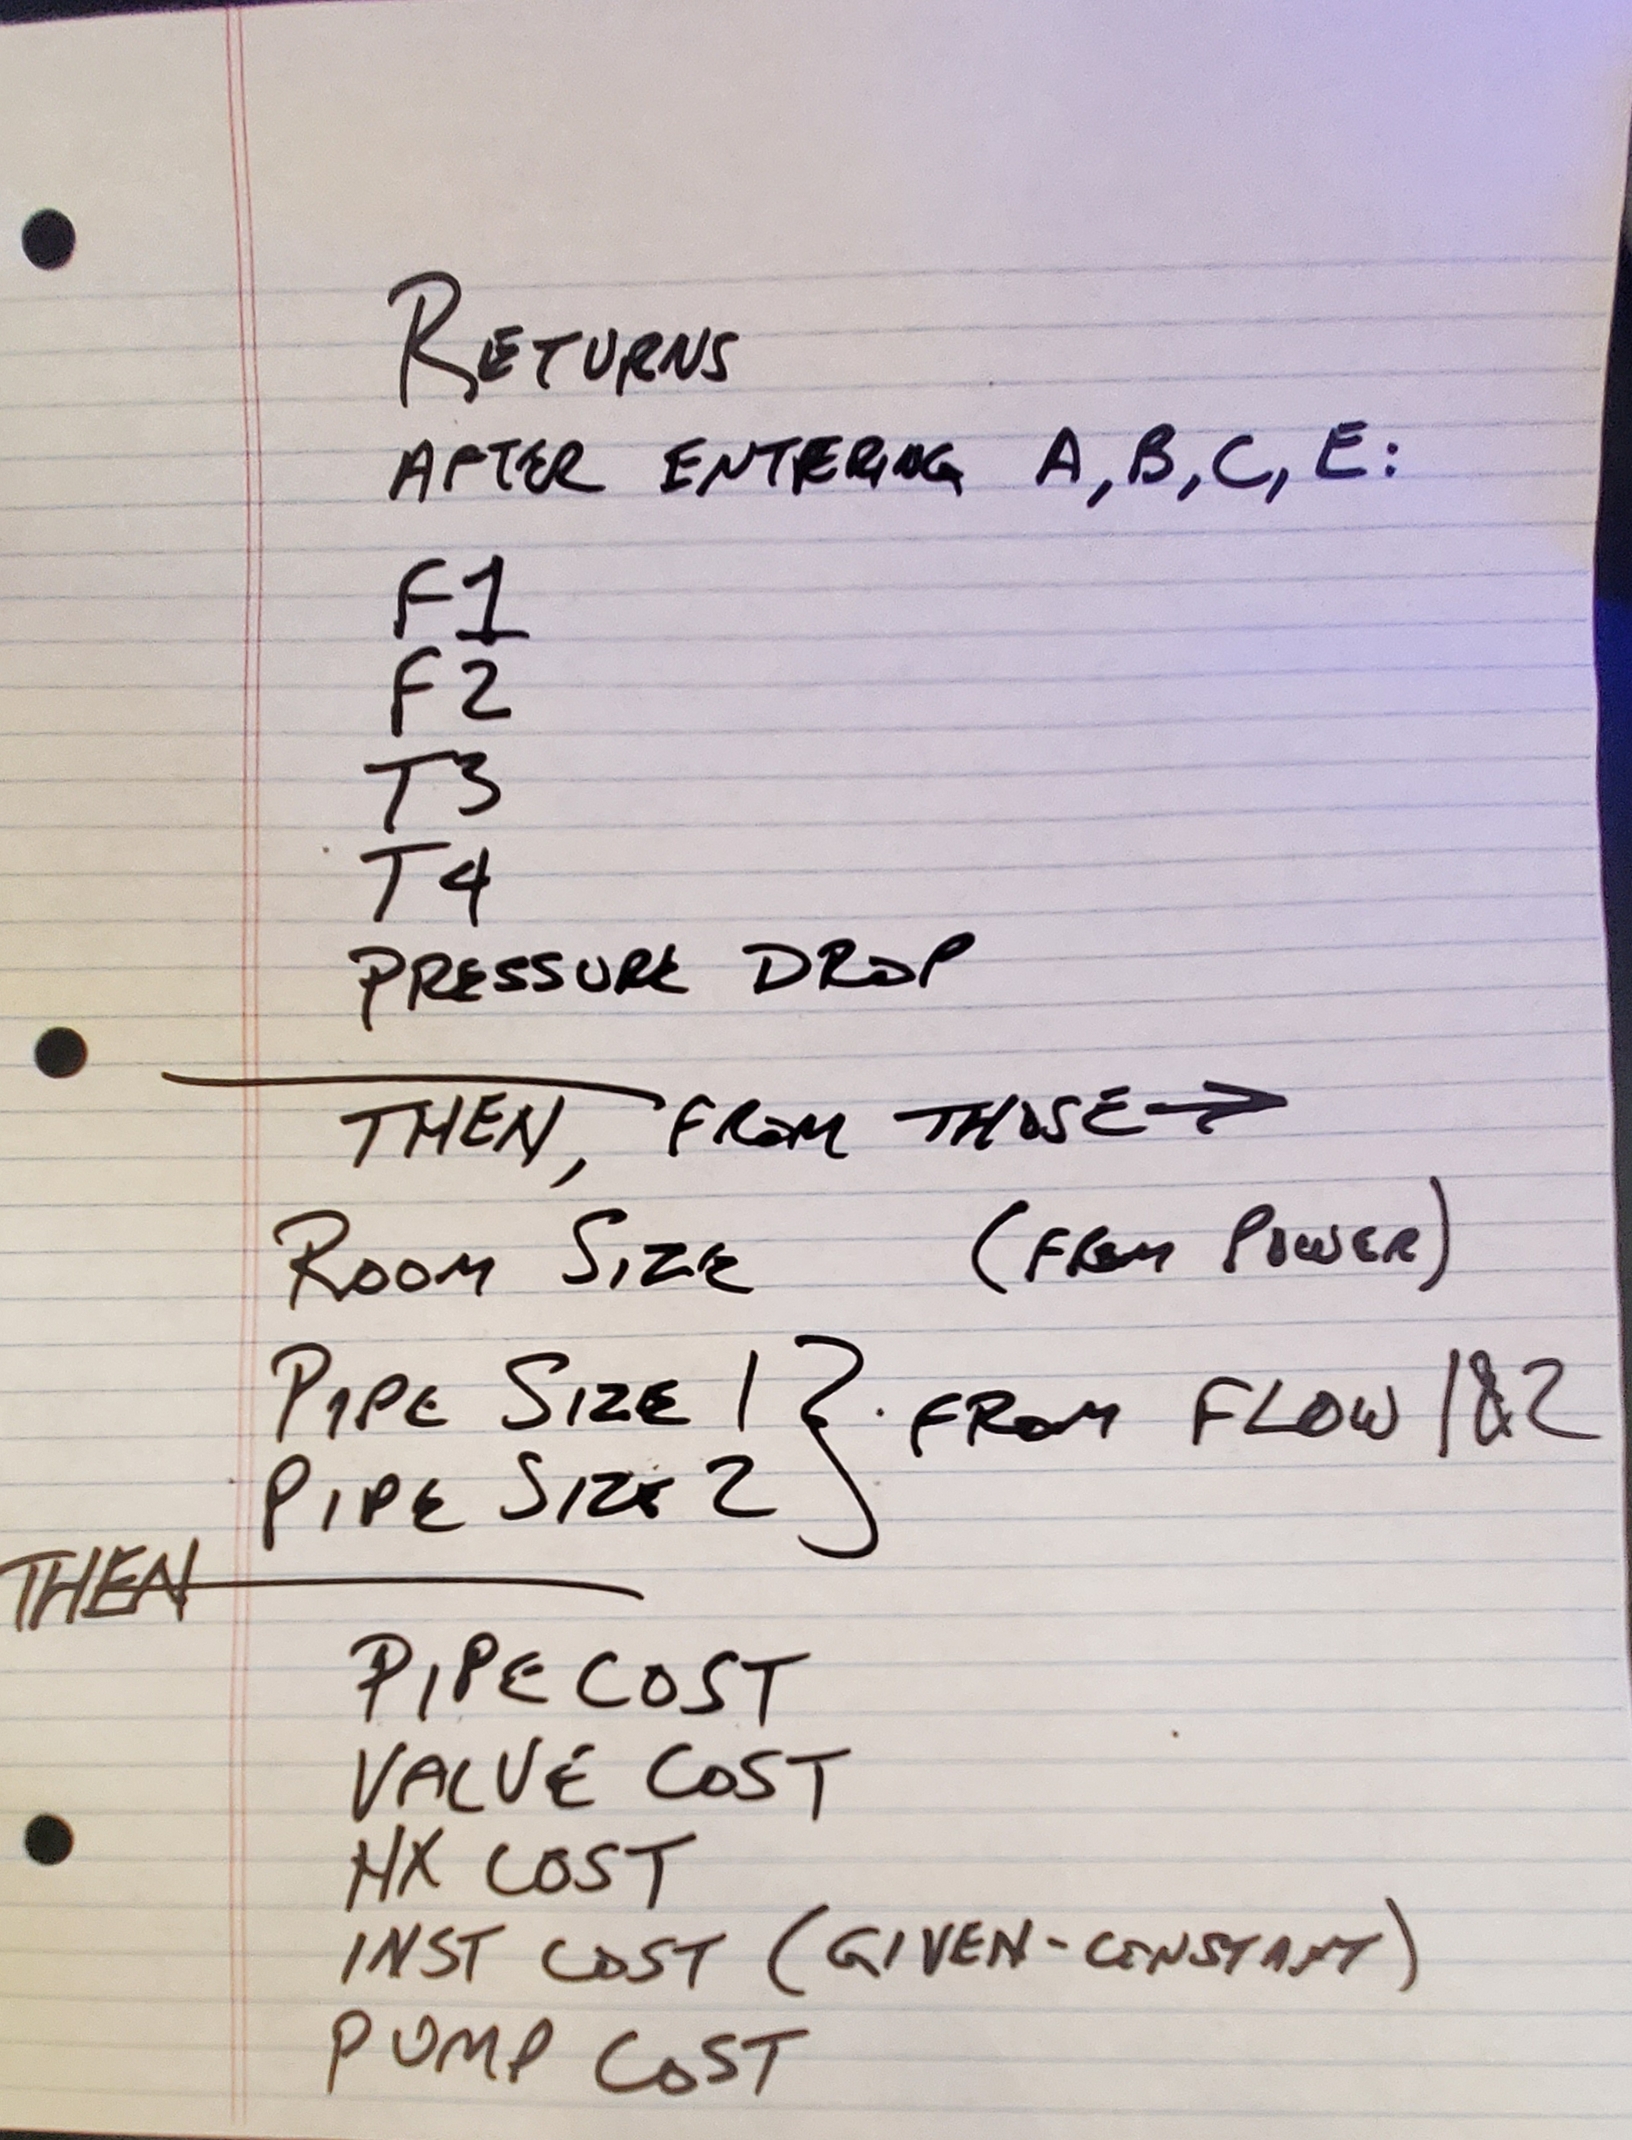 RETURNS
AFTER ENTERING A, B, C, E:
F1
F2
T3
T4
PRESSURE DROP
THEN, FROM THOSE →
ROOM SIZE (FROM POWER)
PIPE SIZE 1 } FROM FLOW 1&2
PIPE SIZE 2
THEN
PIPE COST
VALVE COST
HX COST
INST COST (GIVEN-CONSTANT)
PUMP COST